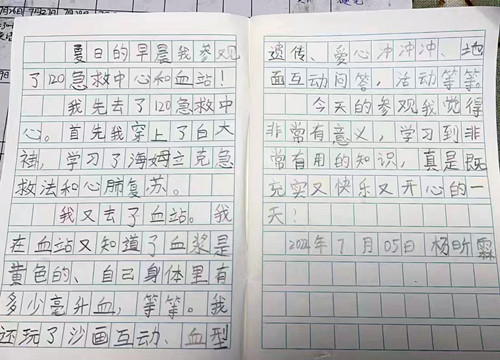 夏日的早晨我参观
了120急救中心和血站！
我先去了120急救中
心。首先我穿上了白大
褂，学习了海姆立克急
救法和心肺复苏。
我又去了血站。我
在血站又知道了血浆是
黄色的、自己身体里有
多少毫升血，等等。我
还玩了沙画互动、血型
遗传、爱心冲冲冲、地
面互动问答，活动等等。
今天的参观我觉得
非常有意义，学习到非
常有用的知识，真是既
充实又快乐又开心的一
天！
2024年7月05日 杨昕霖